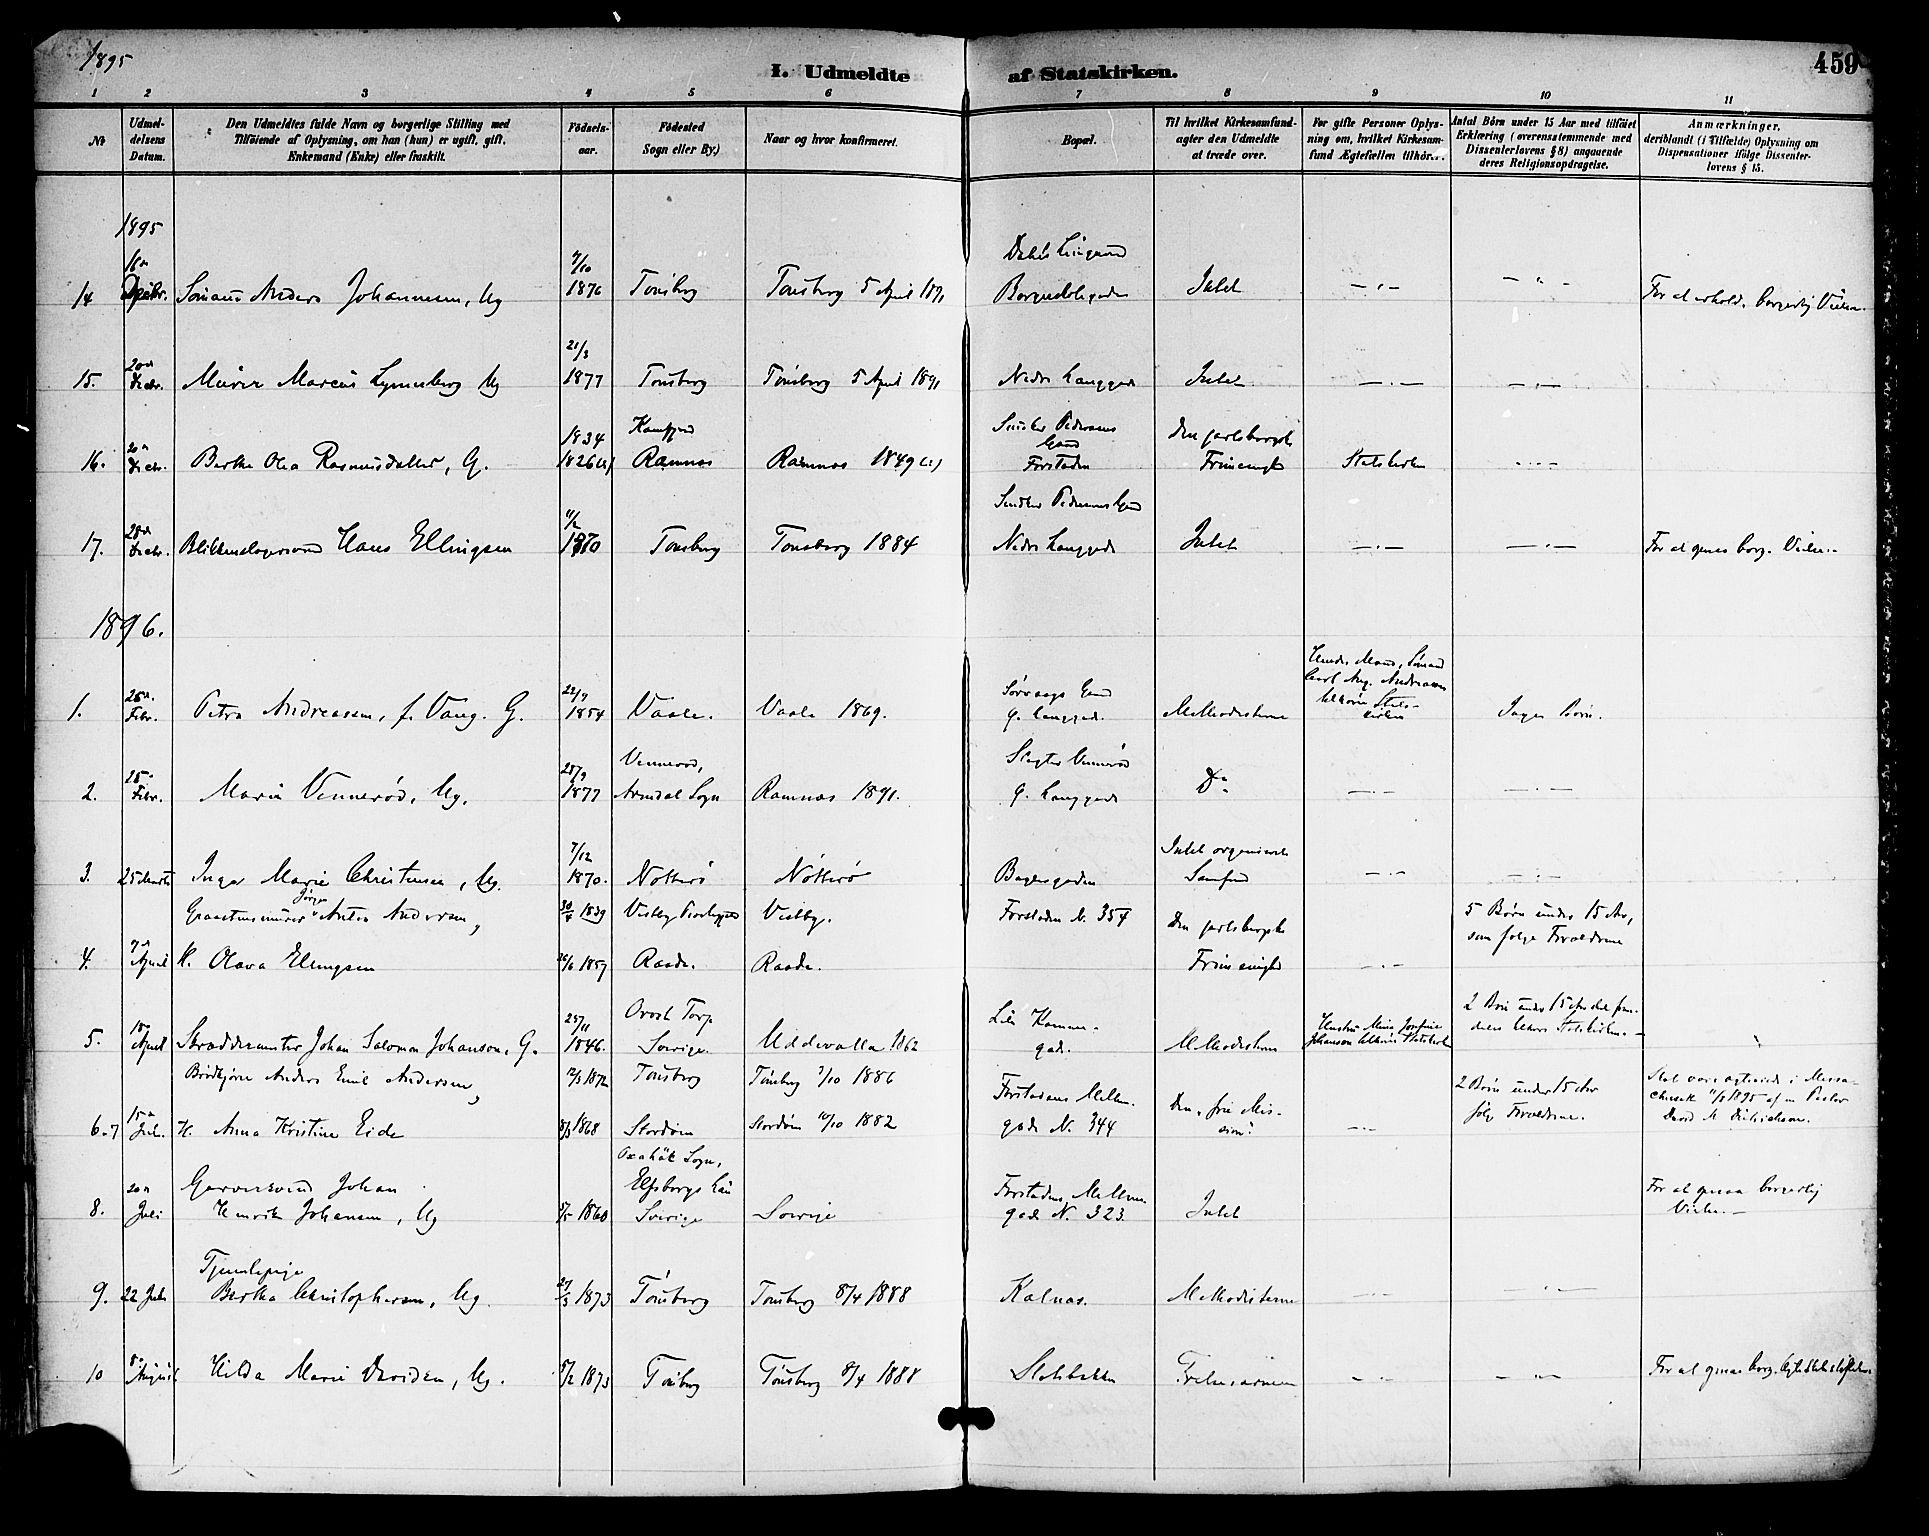 1895
I. Udmeldte af Statskirken.
459
1 2 3 4 5 6 7 8 9 10 11
No
Udmeldelsens Datum.
Den Udmeldtes fulde Navn og borgerlige Stilling med
Tilføiende af Oplysning, om han (hun) er ugift, gift,
Enkemand (Enke) eller fraskilt.
Fødselsaar.
Fødested
Sogn eller By.)
Naar og hvor konfirmeret.
Bopæl.
Til hvilket Kirkesamfund
agter den Udmeldte
at træde over.
For gifte Personer Oplysning
om, hvilket Kirkesamfund
Ægtefællen tilhører.
Antal Børn under 15 Aar med tilføiet
Erklæring (overensstemmende med
Dissenterlovens § 8) angaaende
deres Religionsopdragelse.
Anmærkninger,
deriblandt (i Tilfælde) Oplysning om
Dispensationer ifølge Dissenterlovens
§ 15.
1895
14 16de Decbr. Sømand Anders Johannesen, Ug 7/10 1876 Tønsberg Tønsberg 5 April 1891 Intet For at erhold. borgerlig Vielse.
15. 20de Decbr. Murer Marcus Lynnesberg Ug 21/3 1877 Tønsberg Tønsberg 5 April 1891 Nedre Langgade Intet
16. Decbr. Berthe Olea Rasmusdatter, G. 1834 1826(?) Ramnæs Ramnæs 1849(?) Snedker Pedersens Gaard Forstaden Den jarlsbergske Frimenighed Statskirken
17. 28de Decbr. Blikkenslagersvend Hans Ellingsen 11/2 1870 Tønsberg Tønsberg 1884 Nedre Langgade Intet For at opnaa borg. Vielse.
1896.
1. 25de Febr. Petra Andreassen, f. Vang. G. 22/9 1854 Vaale. Vaale 1869. Gaard Ø. Langgade. Methodisterne Hendes Mand, Sømand Carl Aug. Andreassen tilhører Statskirken Ingen Børn.
2. 25de Febr. Marie Vennerød, Ug. 28/9 1877 Vennerød, Arendal Sogn Ramnæs 1891. Slagter Vennerød Ø. Langgade Do
3. 25 Marts Inger Marie Christensen, Ug. 7/12 1870. Nøtterø Nøtterø Baglergaden Intet organiseret Samfund
4. 7de April Graastensmurer Jørgen Anton Andersen, 30/4 1839 Vestby Vestby. Forstaden N. 354 Den jarlsbergske Frimenighed 5 Børn under 15 Aar, som følge Forældrene
H. Olava Ellingsen 26/6 1857 Raade. Raade.
5. 10de April Skræddermester Johan Salomon Johanson, G. 25/11 1846. Torp Sverige. Uddevalla 1862 Lille Kammegade. Methodisterne Hustru Mina Josefine Johanson tilhører Statskirken 2 Børn under 15 Aar
6-7 15de Juli. Brødkjører Anders Emil Andersen, 12/3 1872 Tønsberg Tønsberg 3/10 1886 Forstadens Mellemgade N. 344 Den "frie Mission" 2 Børn under 15 Aar følge Forældrene. Skal være ægteviede i Massachusets 11/8 1895 af en Pastor
H. Anna Kristine Eide 8/3 1868 Stordøen Stordøen 10/10 1882
8. 20de Juli Garversvend Johan Henrik Johansen, Ug 5/5 1860 Sogn, Elfsborgs Län Sverige Sverige Forstadens Mellemgade N. 323. Intet For at opnaa borgerlig Vielse.
9. 22 Juli Tjenestepige Bertha Christophersen, Ug. 27/3 1873 Tønsberg Tønsberg 8/4 1888 Kalnæs. Methodisterne
10 8de August Hilda Marie Davidsen, Ug. 5/2 1873 Tønsberg Tønsberg 8/4 1888 Stoltbakken Frelsesarmeen For at opnaa borg.